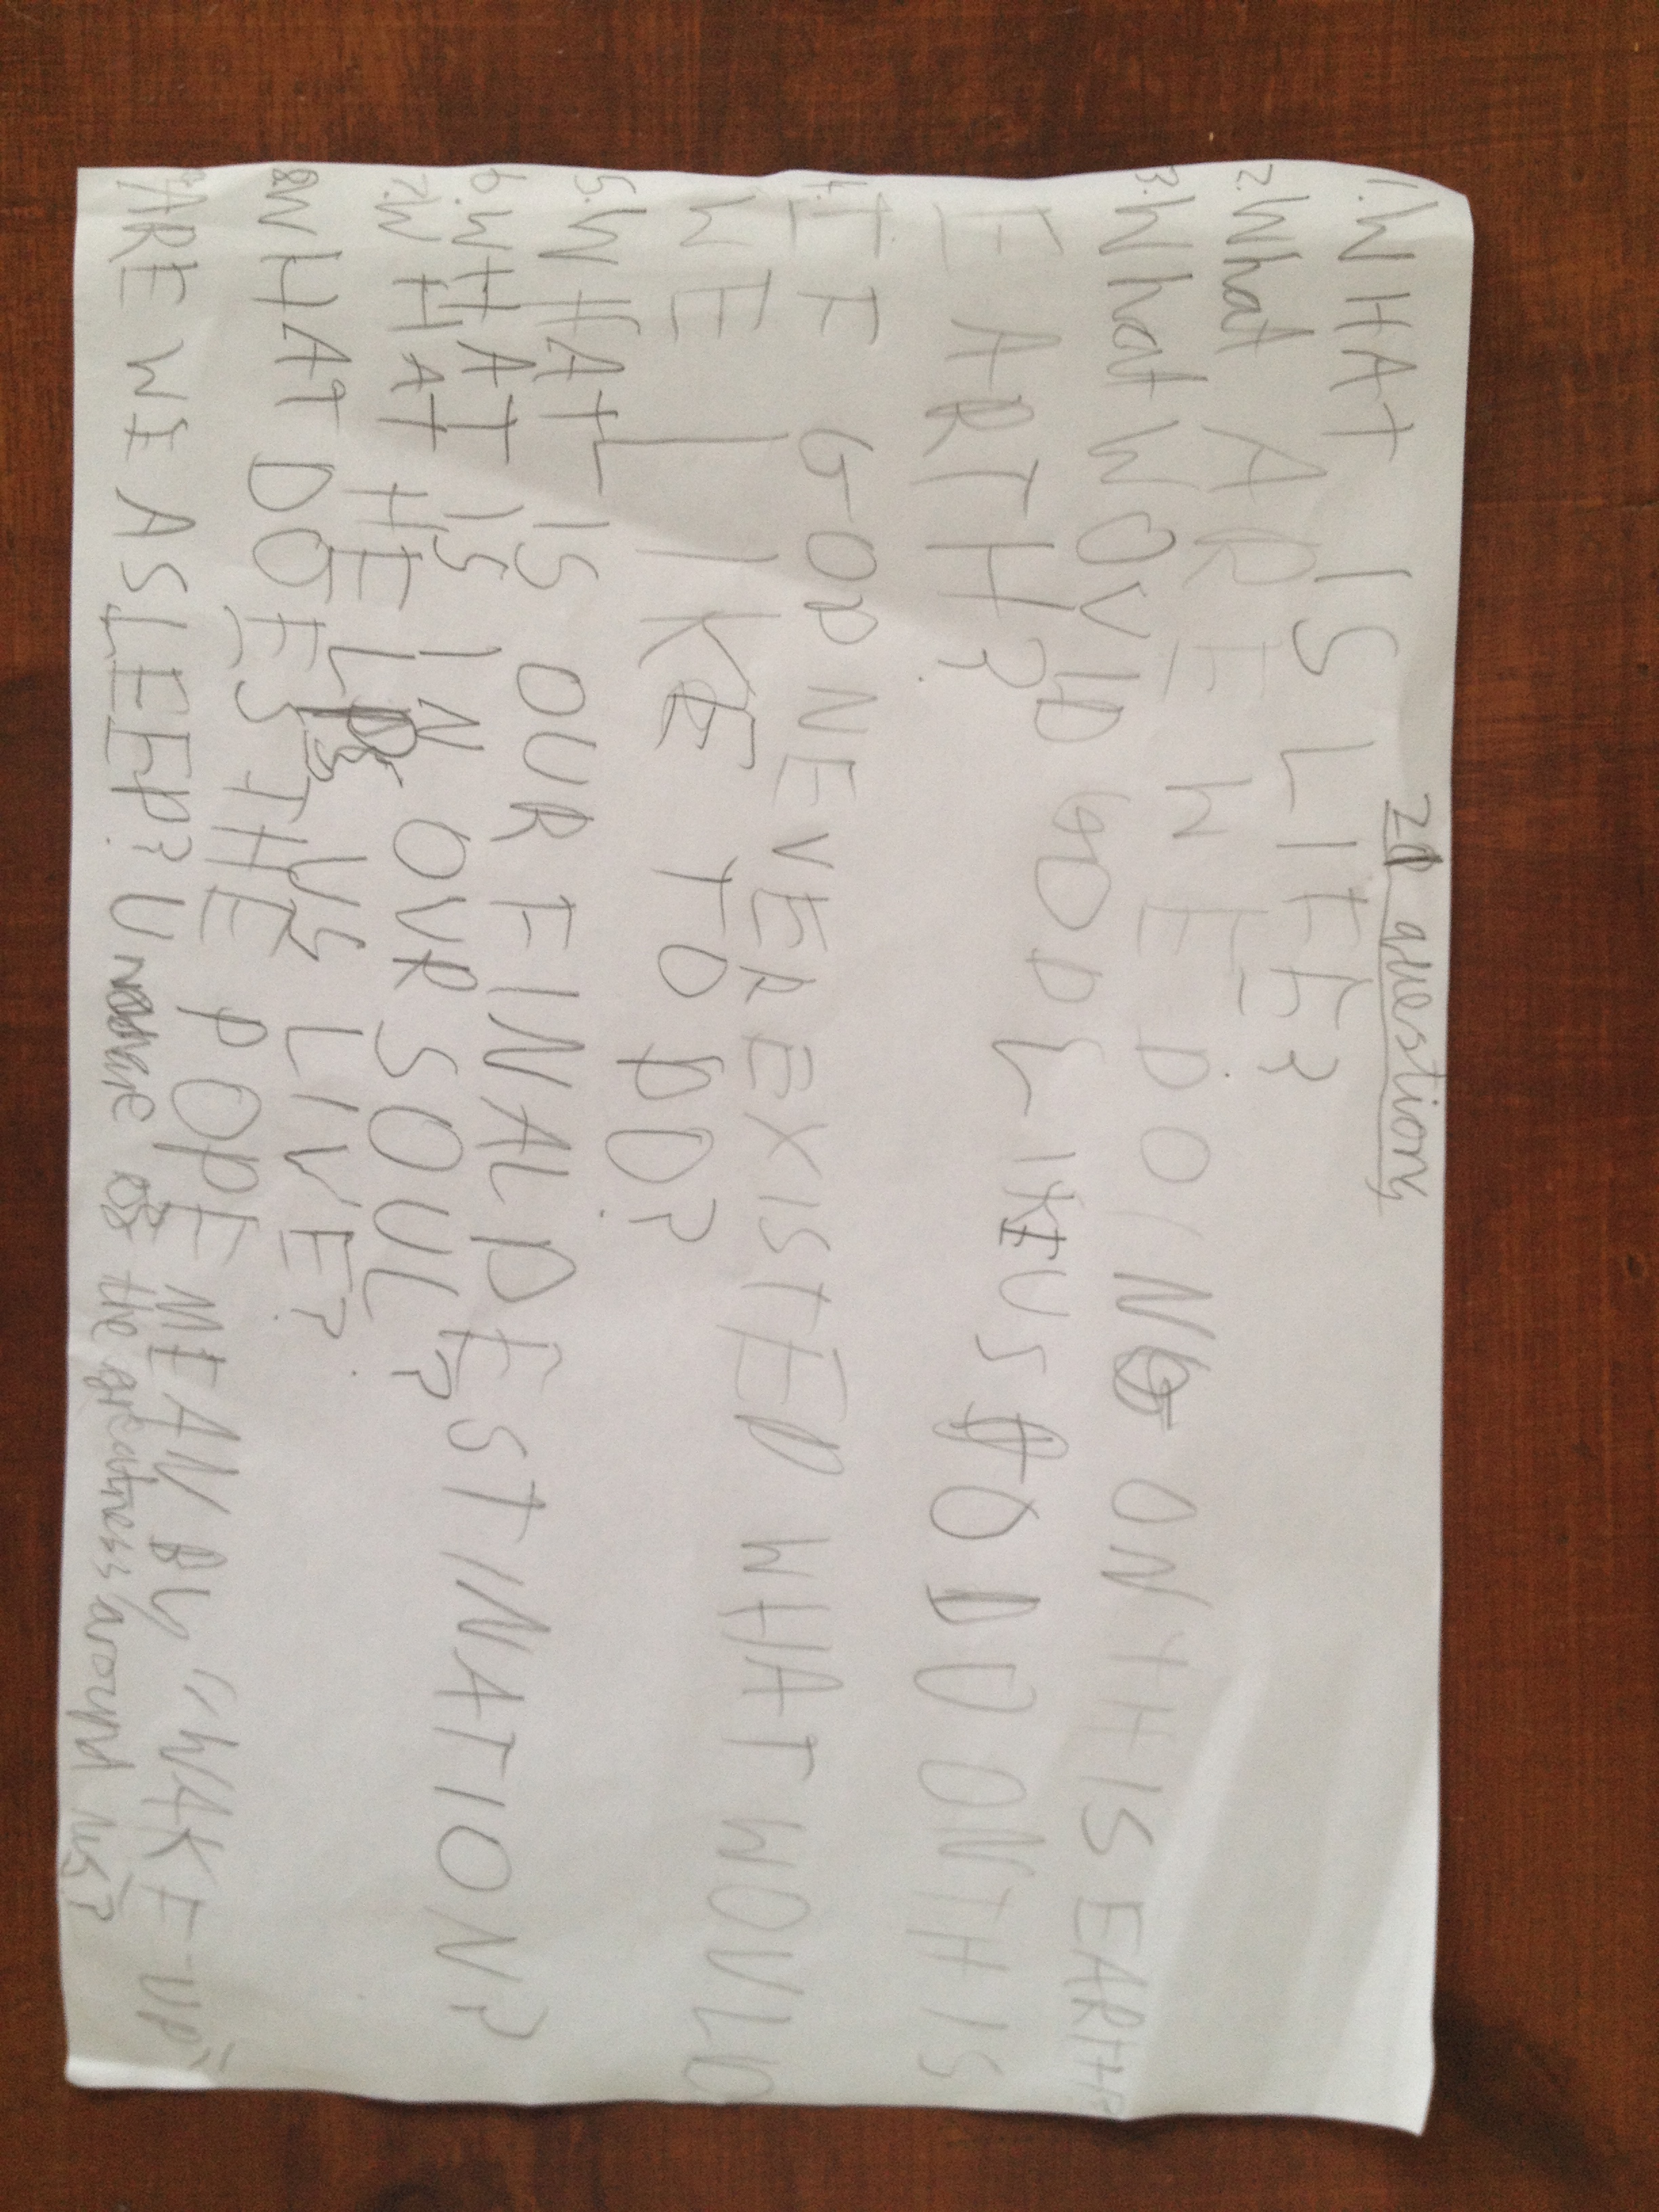 20 question
1. WHAT IS LIFE?
2. What ARE WE DOING ON THIS EARTH?
3. What WOULD GOD LIKE US TO DO ON THIS
EARTH?
4. IF GOD NEVER EXISTED WHAT WOULD
WE LIKE TO DO?
5. WHAT IS OUR FINAL DESTINATION?
6. WHAT IS IN OUR SOUL?
7. WHAT HELPS US LIVE?
8. WHAT DOES THE POPE MEAN BY "WAKE-UP"
ARE WE ASLEEP? Unaware of the greatness around us?